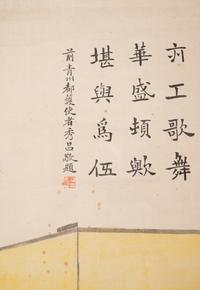 亦工歌舞
華盛頓歟
堪與為伍
前青州都護使者秀昌敬題